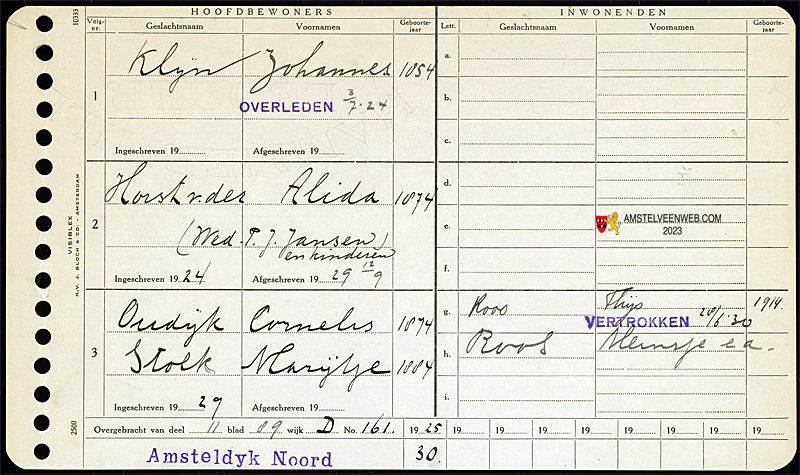 HOOFDBEWONERS
INWONENDEN
10333
Volg-nr.
Geslachtsnaam
Voornamen
Geboorte-jaar
Lett.
Geslachtsnaam
Voornamen
Geboorte-jaar
1
Klijn Johannes 1854
OVERLEDEN 3/7-24
Ingeschreven 19
Afgeschreven 19
a.
b.
c.
2
Horst v. der Alida 1874
(Wed. P. J. Jansen)
en kinderen
Ingeschreven 1924
Afgeschreven 29 12/9
d.
e.
f.
AMSTELVEENWEB.COM
2023
3
Oudijk Cornelis 1874
Stolk Marijtje 1884
Ingeschreven 1929
Afgeschreven 19
g. Roos Thijs 1914.
VERTROKKEN 28/6'30
h. Roos e a.
i.
VISIBLEX
N.V. J. BLOCH & CO. - AMSTERDAM
2500
Overgebracht van deel 11 blad 89 wijk D No. 161.
1925
19
19
19
19
19
19
19
19
Amsteldyk Noord
30.